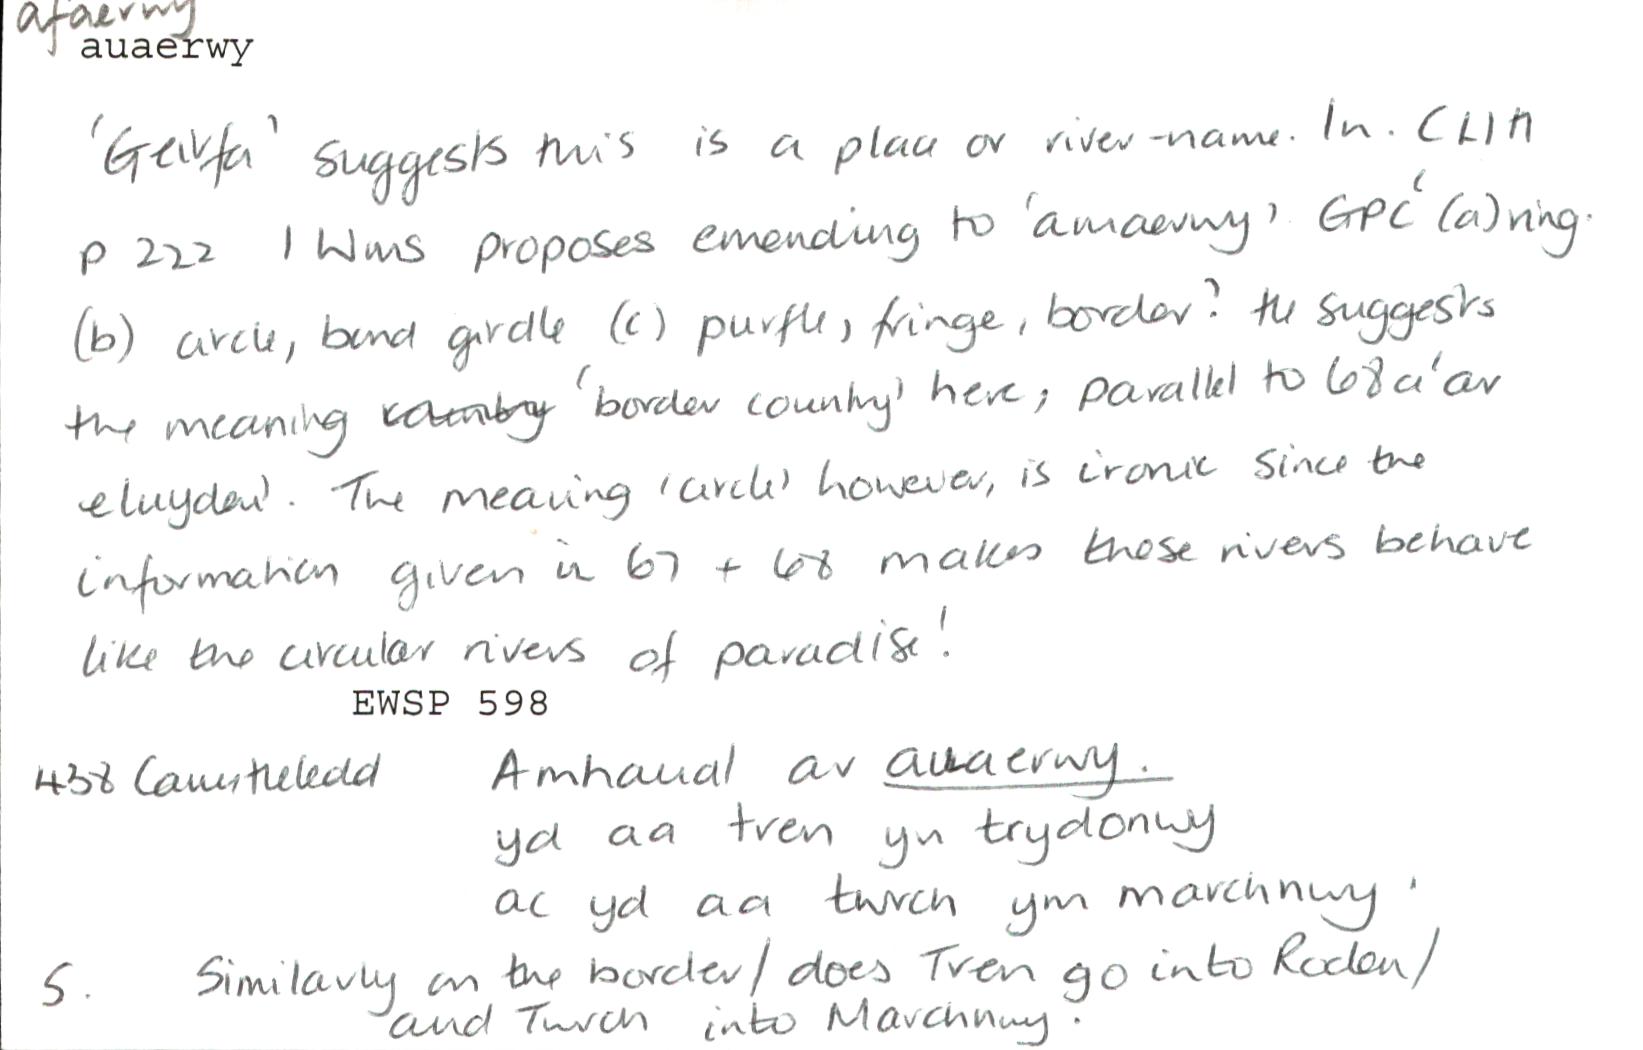 afaerwy
auaerwy
'Geirfa' suggests this is a place or river-name. In. CLlH
p 222 I Wms proposes emending to 'amaerwy'. GPC '(a) ring.
(b) circle, band girdle (c) purfle, fringe, border? He suggests
the meaning country 'border country' here; parallel to 68a 'ar
eluyden'. The meaning 'circle' however, is ironic since the
information given in 67 + 68 makes these rivers behave
like the circular rivers of paradise!
EWSP 598
438 Canu Heledd Amhaual ar auaerwy.
yd aa tren yn trydonwy
ac yd aa twrch ym marchnwy.
S. Similarly on the border/ does Tren go into Roden/
and Twrch into Marchnwy.